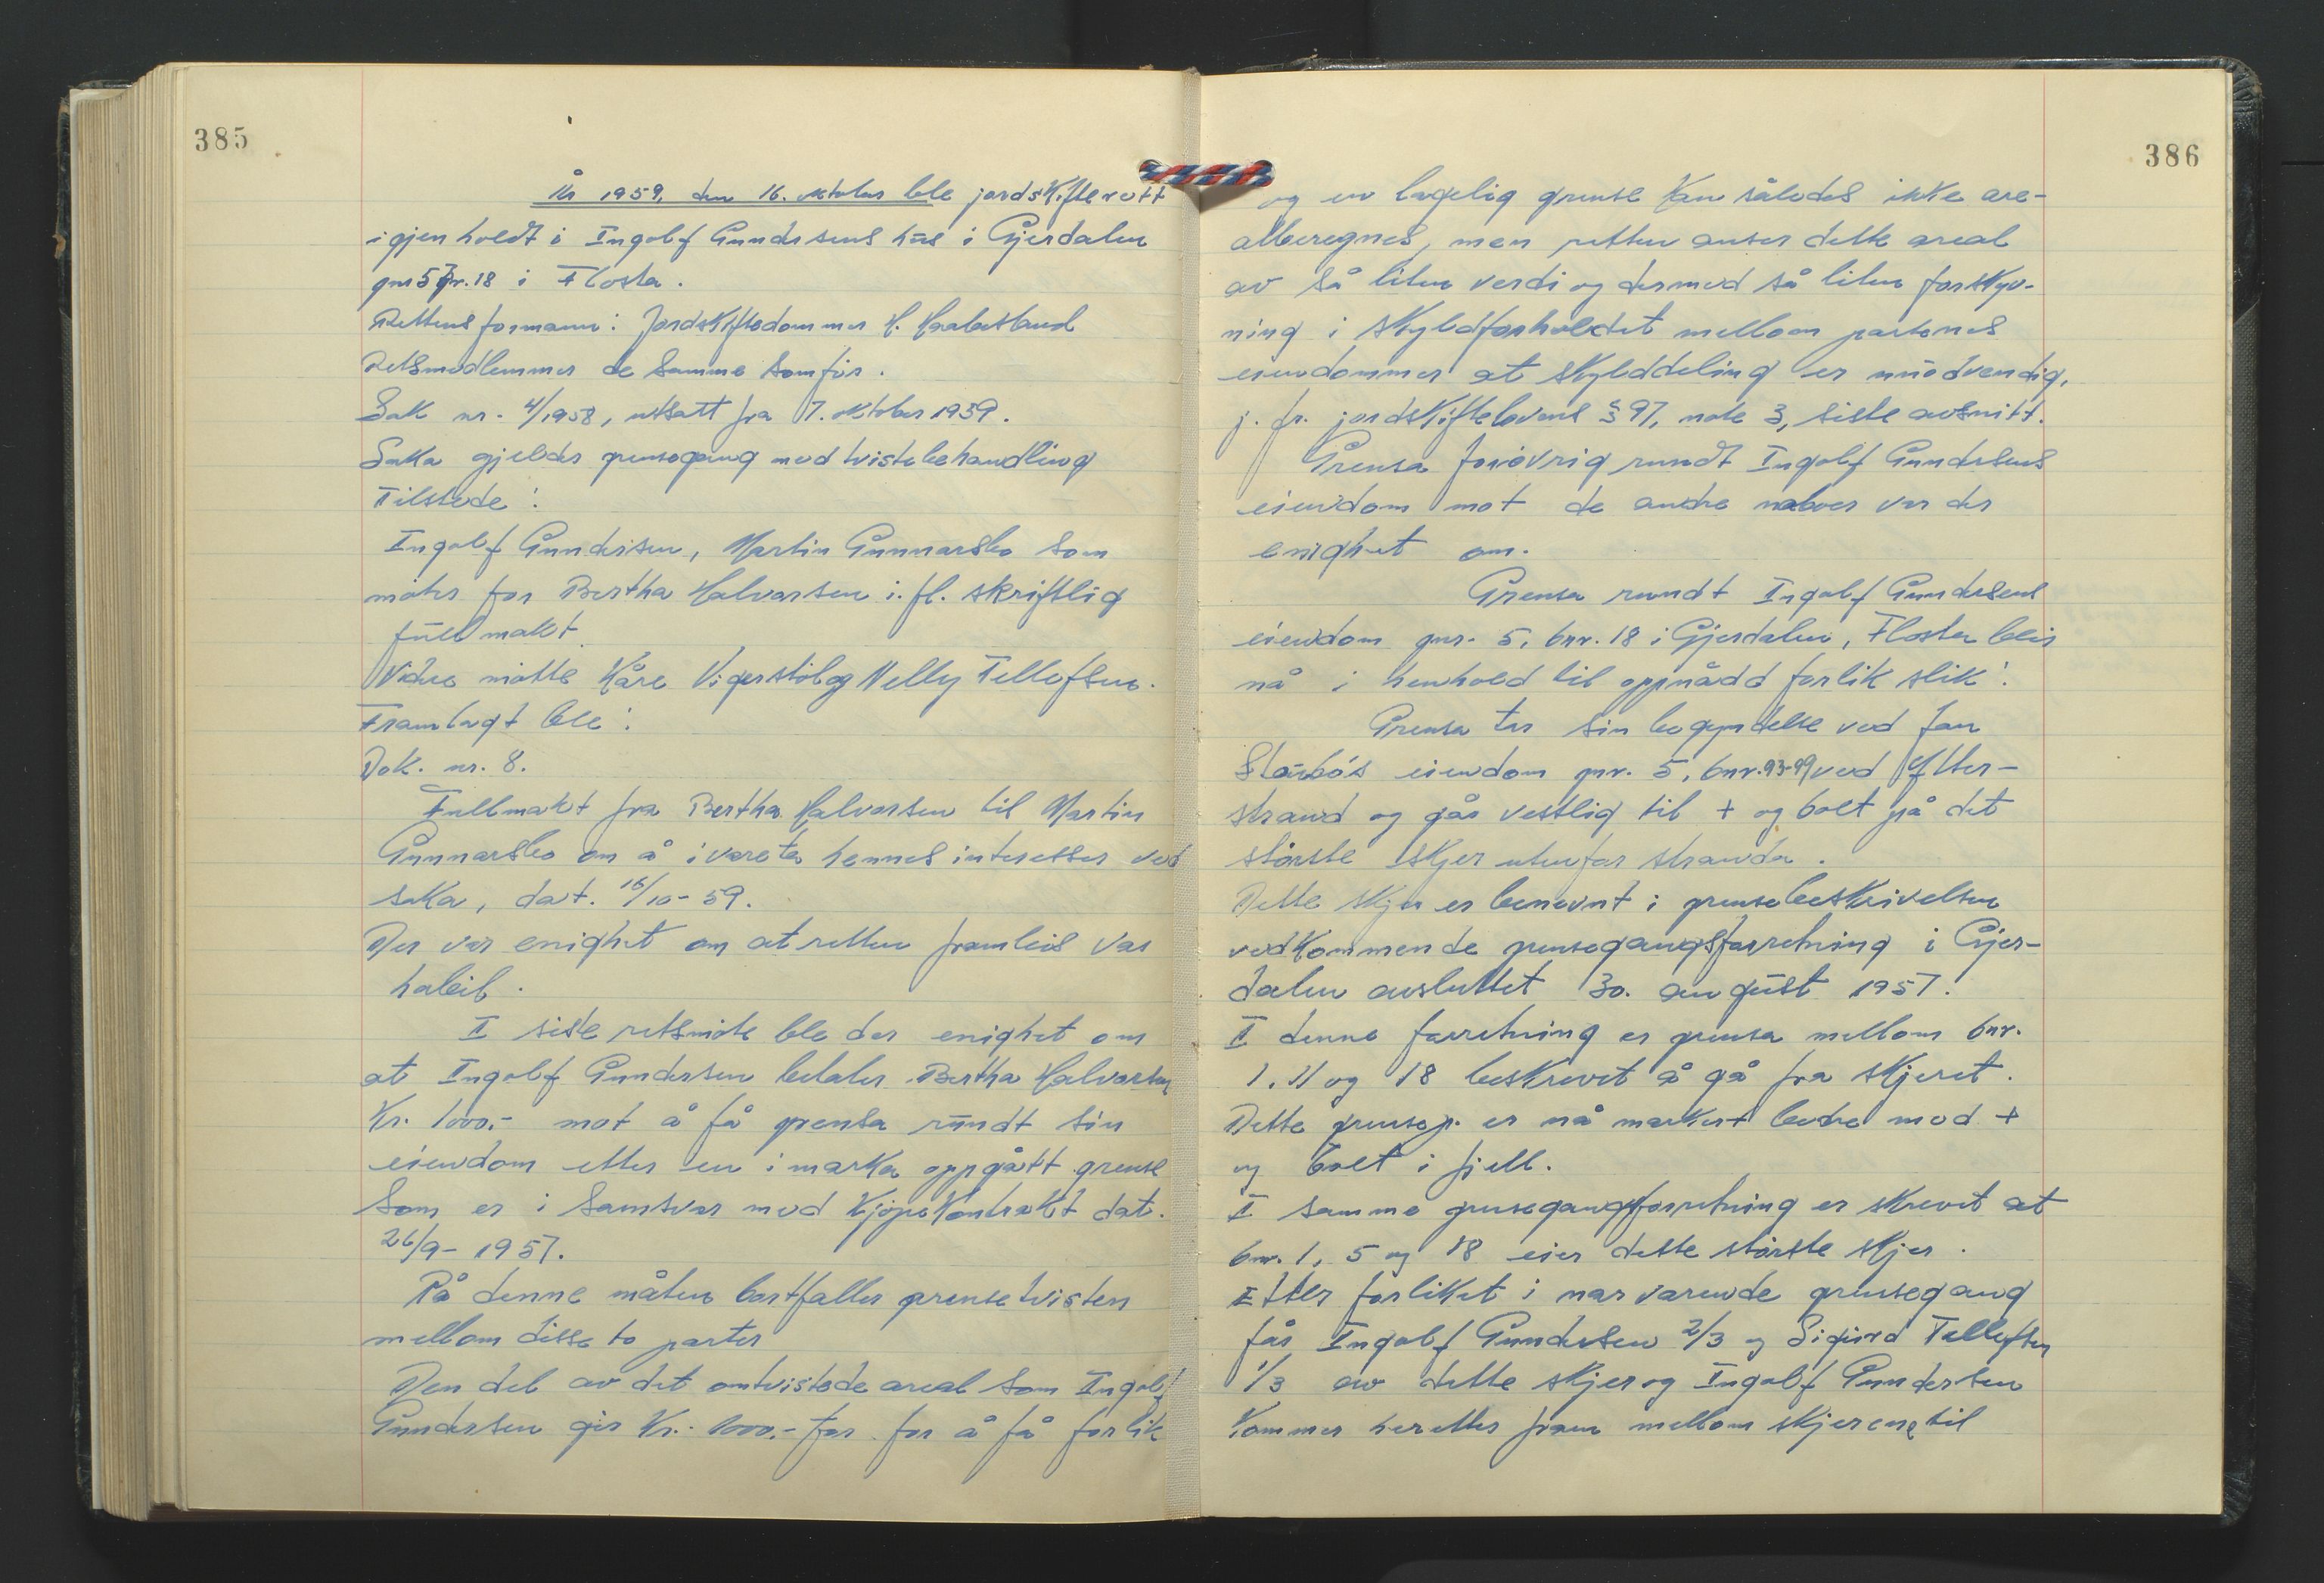 385
År 1959, den 16. oktober ble jordskifterett
igjen holdt i Ingolf Gundersens hus i Gjerdalen
gnr 5 bnr. 18 i Flosta.
Rettens formann: Jordskiftedommer H. Haabesland
Retsmedlemmer de samme som før.
Sak nr. 4/1958, utsatt fra 7. oktober 1959.
Saka gjelder grensegang med tvistebehandling
Tilstede:
Ingolf Gundersen, Martin Gunnarsbo som
møter for Bertha Halvorsen i. fl. skriftlig
fullmakt.
Videre møtte Kåre Vigerstøl og Nelly Tellefsen.
Framlagt ble:
Dok. nr. 8.
Fullmakt fra Bertha Halvorsen til Martin
Gunnarsbo om å ivareta hennes interesser ved
saka, dat. 16/10-59.
Der var enighet om at retten framleis var
habil.
I siste retsmøte ble der enighet om
at Ingolf Gundersen betaler Bertha Halvorsen
Kr. 1000.- mot å få grensa rundt sin
eiendom etter en i marka oppgått grense
som er i samsvar med kjøpekontrakt dat.
26/9-1957.
På denne måten bortfaller grensetvisten
mellom disse to parter
Den del av det omtvistede areal som Ingolf
Gundersen gir Kr. 1000.- for for å få forlik
386
og en lagelig grense kan således ikke are-
alberegnes, men retten anser dette areal
av så liten verdi og dermed så liten forskyv-
ning i skyldforholdet mellom partenes
eiendommer at skylddeling er unødvendig,
j. fr. jordskiftelovens § 97, note 3, siste avsnitt.
Grensa forøvrig rundt Ingolf Gundersens
eiendom mot de andre naboer var der
enighet om.
Grensa rundt Ingolf Gundersens
eiendom gnr. 5, bnr. 18 i Gjerdalen, Flosta blir
nå i henhold til oppnådd forlik slik:
Grensa tar sin begyndelse ved Jan
Staubø's eiendom gnr. 5, bnr. 93-99 ved Ytter-
strand og går vestlig til + og bolt på det
største skjer utenfor stranda.
Dette skjer er benevnt i grensebeskrivelsen
vedkommende grensegangsforretning i Gjer-
dalen avsluttet 30. august 1957.
I denne forretning er grensa mellom bnr.
1, 11 og 18 beskrevet å gå fra skjeret.
Dette grensep. er nå markert bedre med +
og bolt i fjell.
I samme grensegangsforretning er skrevet at
bnr. 1, 5 og 18 eier dette største skjer.
Etter forliket i nærværende grensegang
får Ingolf Gundersen 2/3 og Sigurd Tellefsen
1/3 av dette skjer og Ingolf Gundersen
kommer heretter fram mellom skjerene til